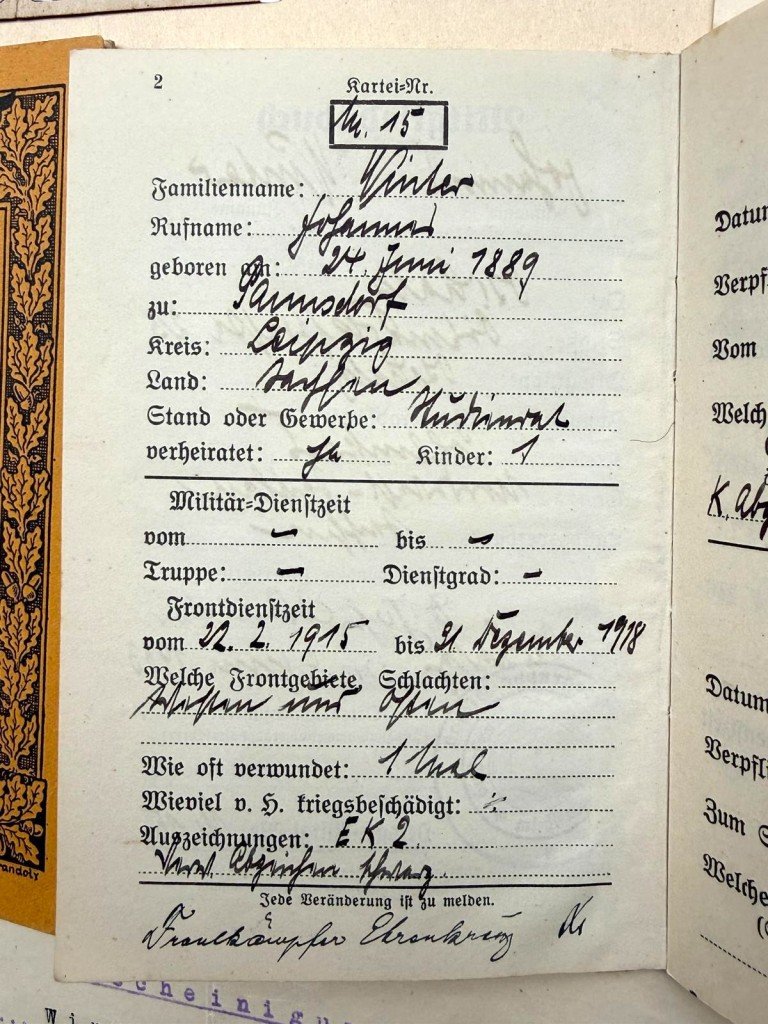 2
Kartei-Nr.
Nr. 15
Familienname: Winter
Rufname: Johannes
geboren am: 24. Juni 1889
zu: Paunsdorf
Kreis: Leipzig
Land: Sachsen
Stand oder Gewerbe: Studienrat
verheiratet: ja Kinder: 1
Militär-Dienstzeit
vom – bis –
Truppe: – Dienstgrad: –
Frontdienstzeit
vom 22. 2. 1915 bis 31 Dezember 1918
Welche Frontgebiete, Schlachten:
Westen und Osten
Wie oft verwundet: 1 Mal
Wieviel v. H. kriegsbeschädigt: ·/.
Auszeichnungen: E K 2.
Verw. Abzeichen schwarz.
Jede Veränderung ist zu melden.
Frontkämpfer Ehrenkreuz
Datum
Verpfl
Vom
Welch
K. Abz
Datum
Verpfli
Zum S
Welche
(
cheinigu
Wi